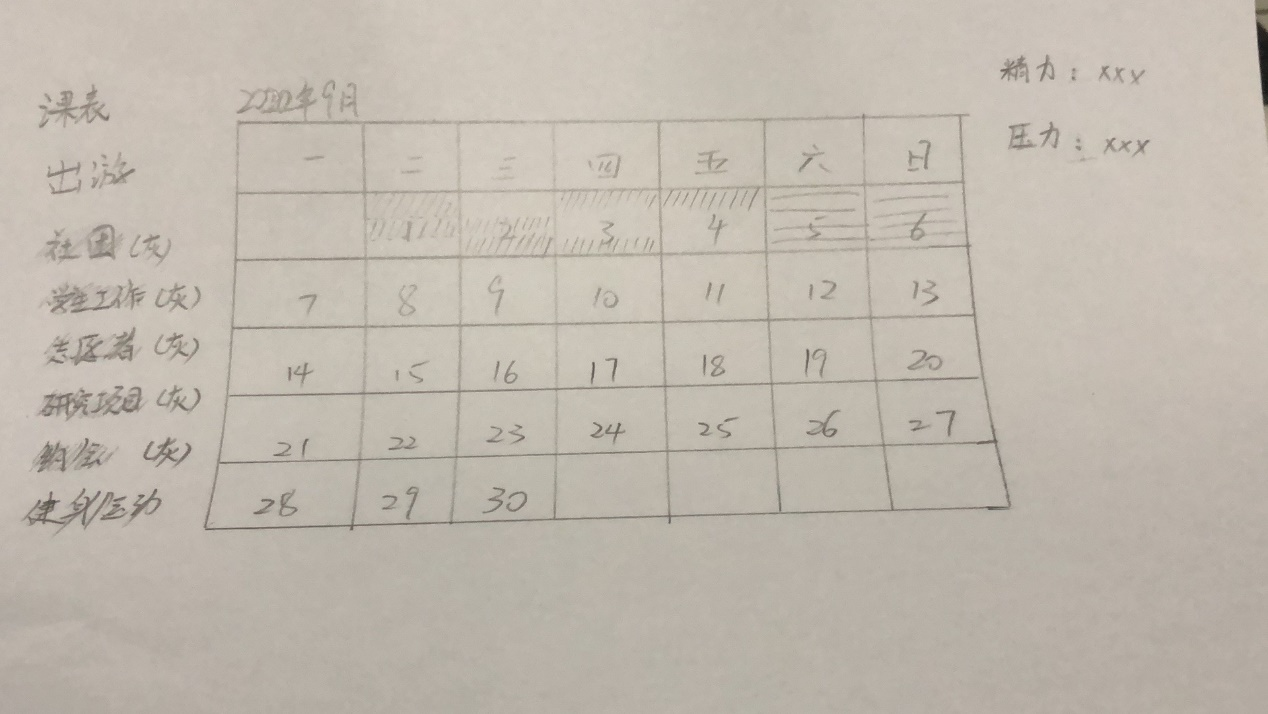 课表
出游
社团(灰)
学生工作(灰)
志愿者(灰)
研究项目(灰)
(灰)
健身/运动
2020年9月
一 二 三 四 五 六 日
1 2 3 4 5 6
7 8 9 10 11 12 13
14 15 16 17 18 19 20
21 22 23 24 25 26 27
28 29 30
精力：xxx
压力：xxx